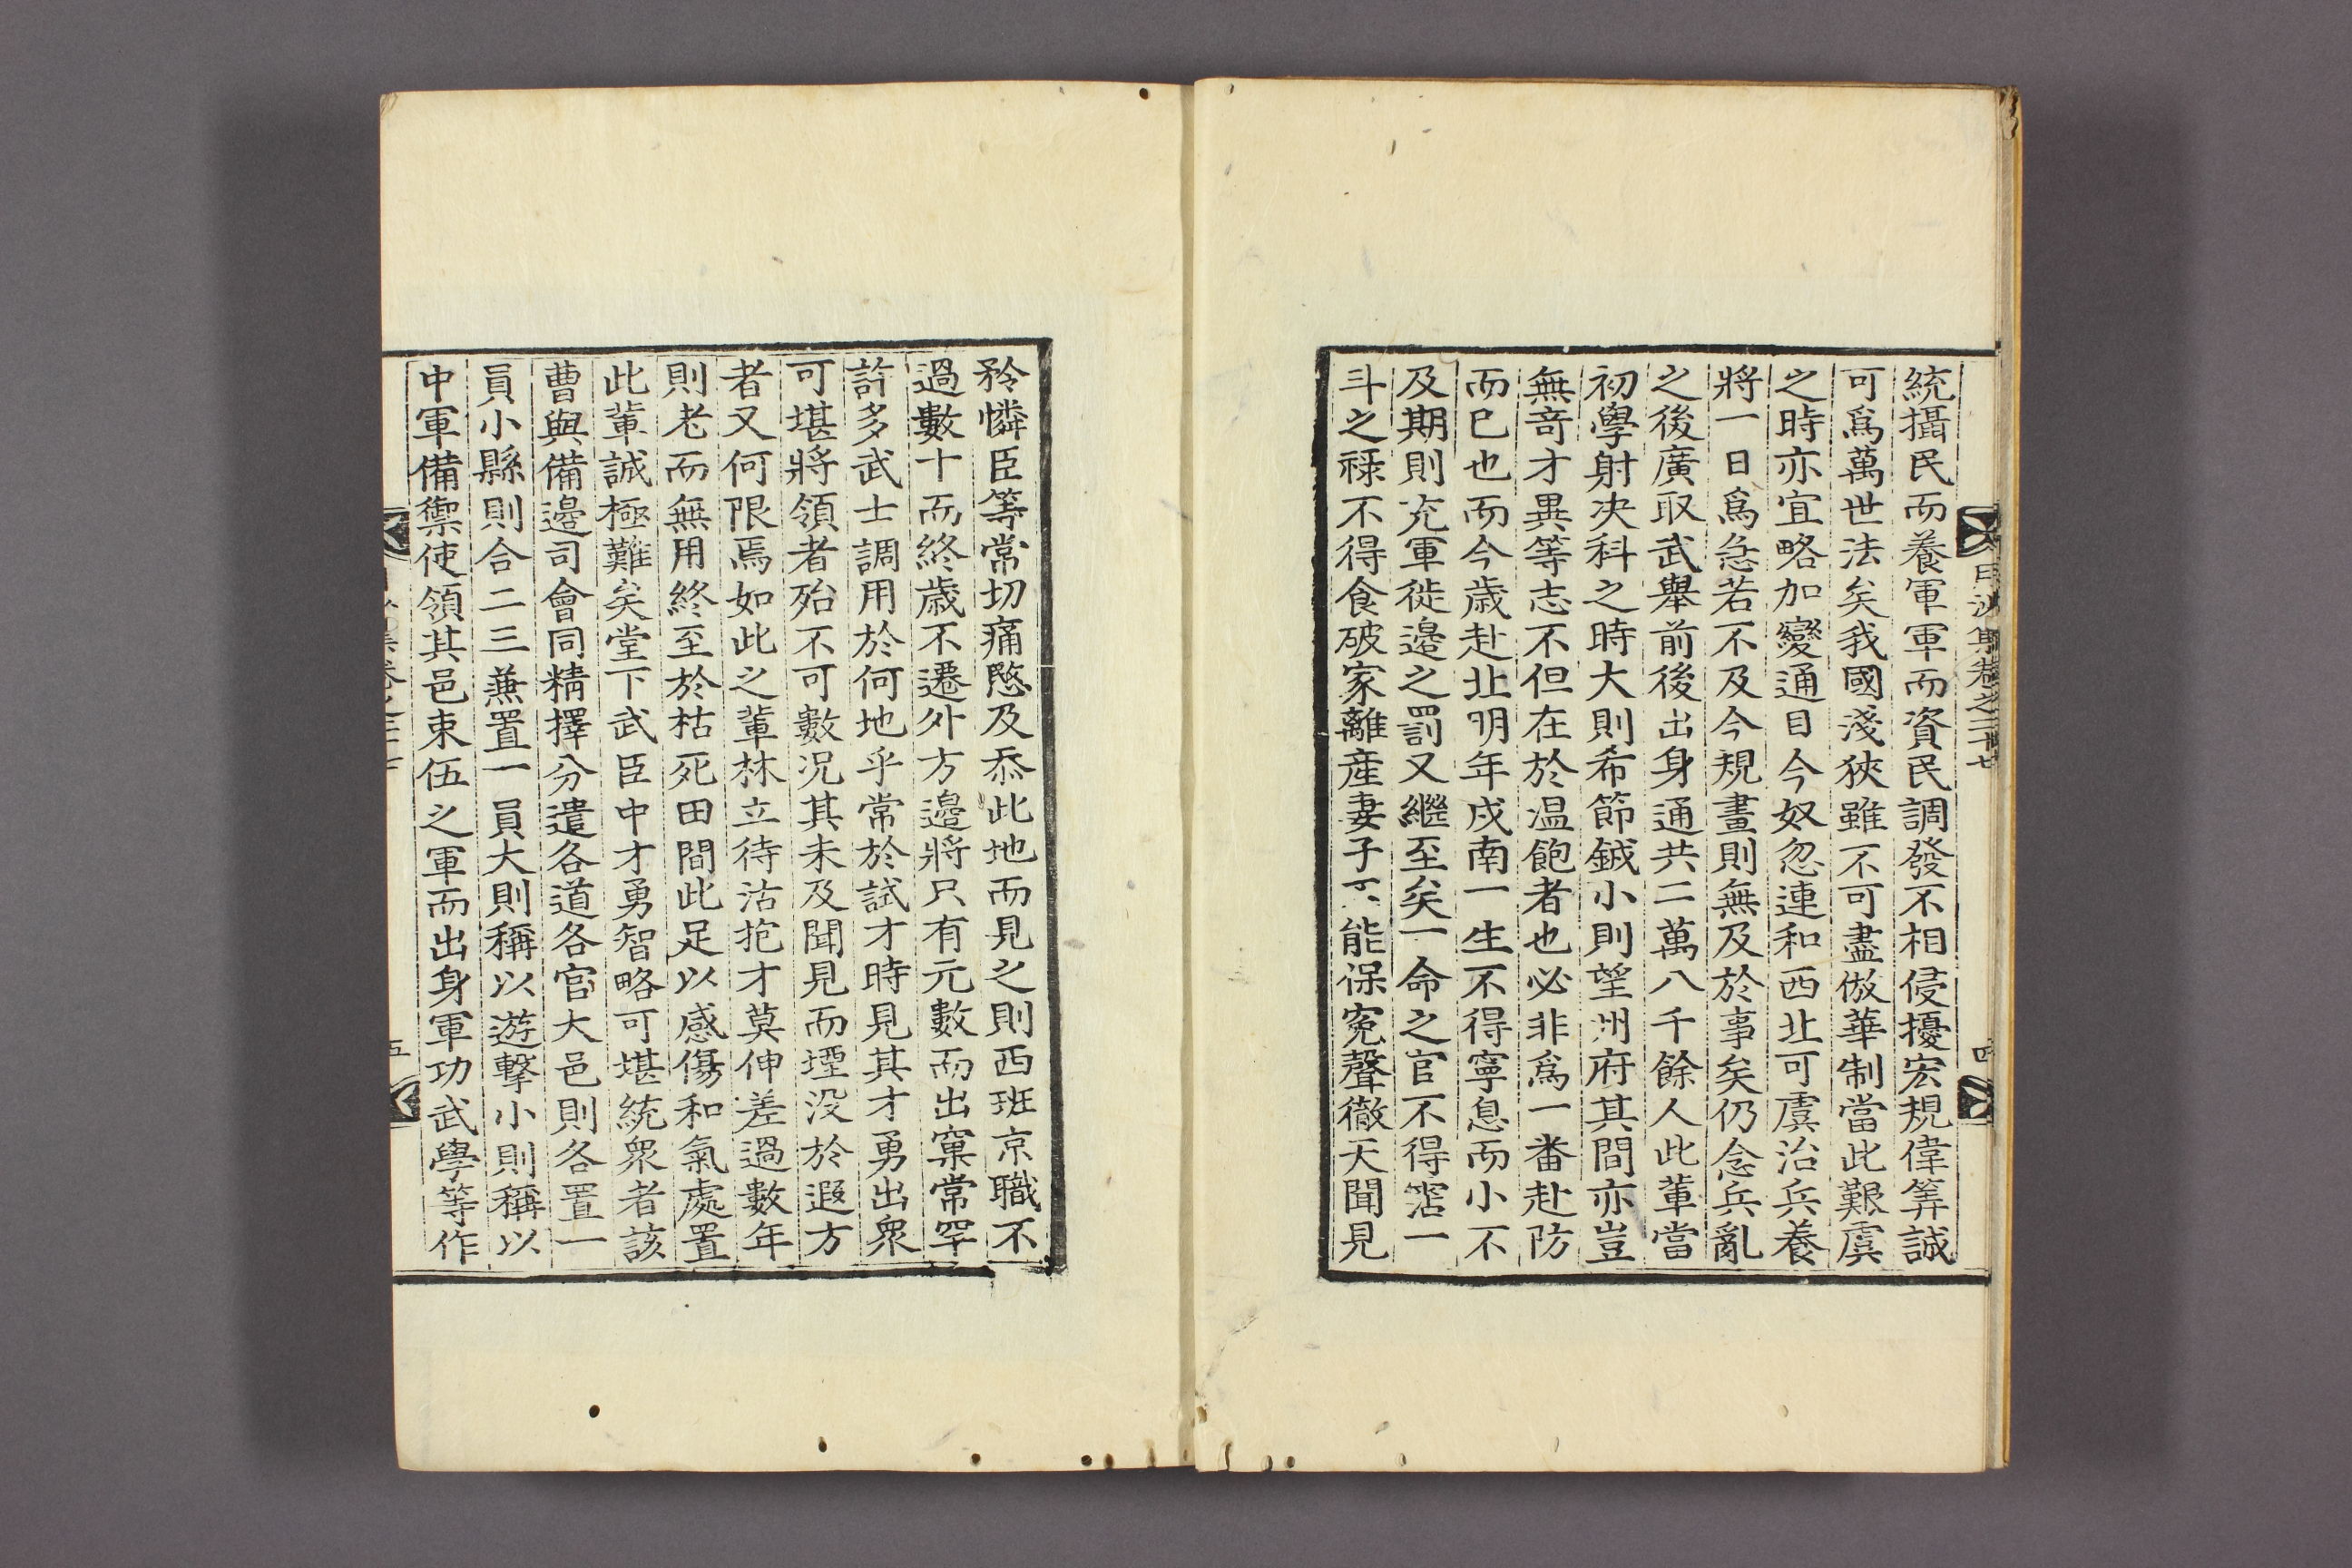 統攝民而養軍軍而資民調發不相侵擾宏規偉筭誠
可爲萬世法矣我國淺狹雖不可盡倣華制當此艱虞
之時亦宜略加變通目今奴忽連和西北可虞治兵養
將一日爲急若不及今規畫則無及於事矣仍念兵亂
之後廣取武舉前後出身通共二萬八千餘人此軰當
初學射决科之時大則希節鉞小則望州府其間亦豈
無竒才異等志不但在於温飽者也必非爲一番赴防
而已也而今歳赴北明年戍南一生不得寧息而小不
及期則充軍徙邊之罰又繼至矣一命之官不得霑一
斗之禄不得食破家離産妻子不能保寃聲徹天聞見
矜憐臣等常切痛愍及忝此地而見之則西班京職不
過數十而終歳不遷外方邊將只有元數而出窠常罕
許多武士調用於何地乎常於試才時見其才勇出衆
可堪將領者殆不可數况其未及聞見而堙没於遐方
者又何限焉如此之軰林立待沽抱才莫伸差過數年
則老而無用終至於枯死田間此足以感傷和氣處置
此軰誠極難矣堂下武臣中才勇智略可堪統衆者該
曹與備邊司會同精擇分遣各道各官大邑則各置一
員小縣則合二三兼置一員大則稱以遊擊小則稱以
中軍備禦使領其邑束伍之軍而出身軍功武學等作